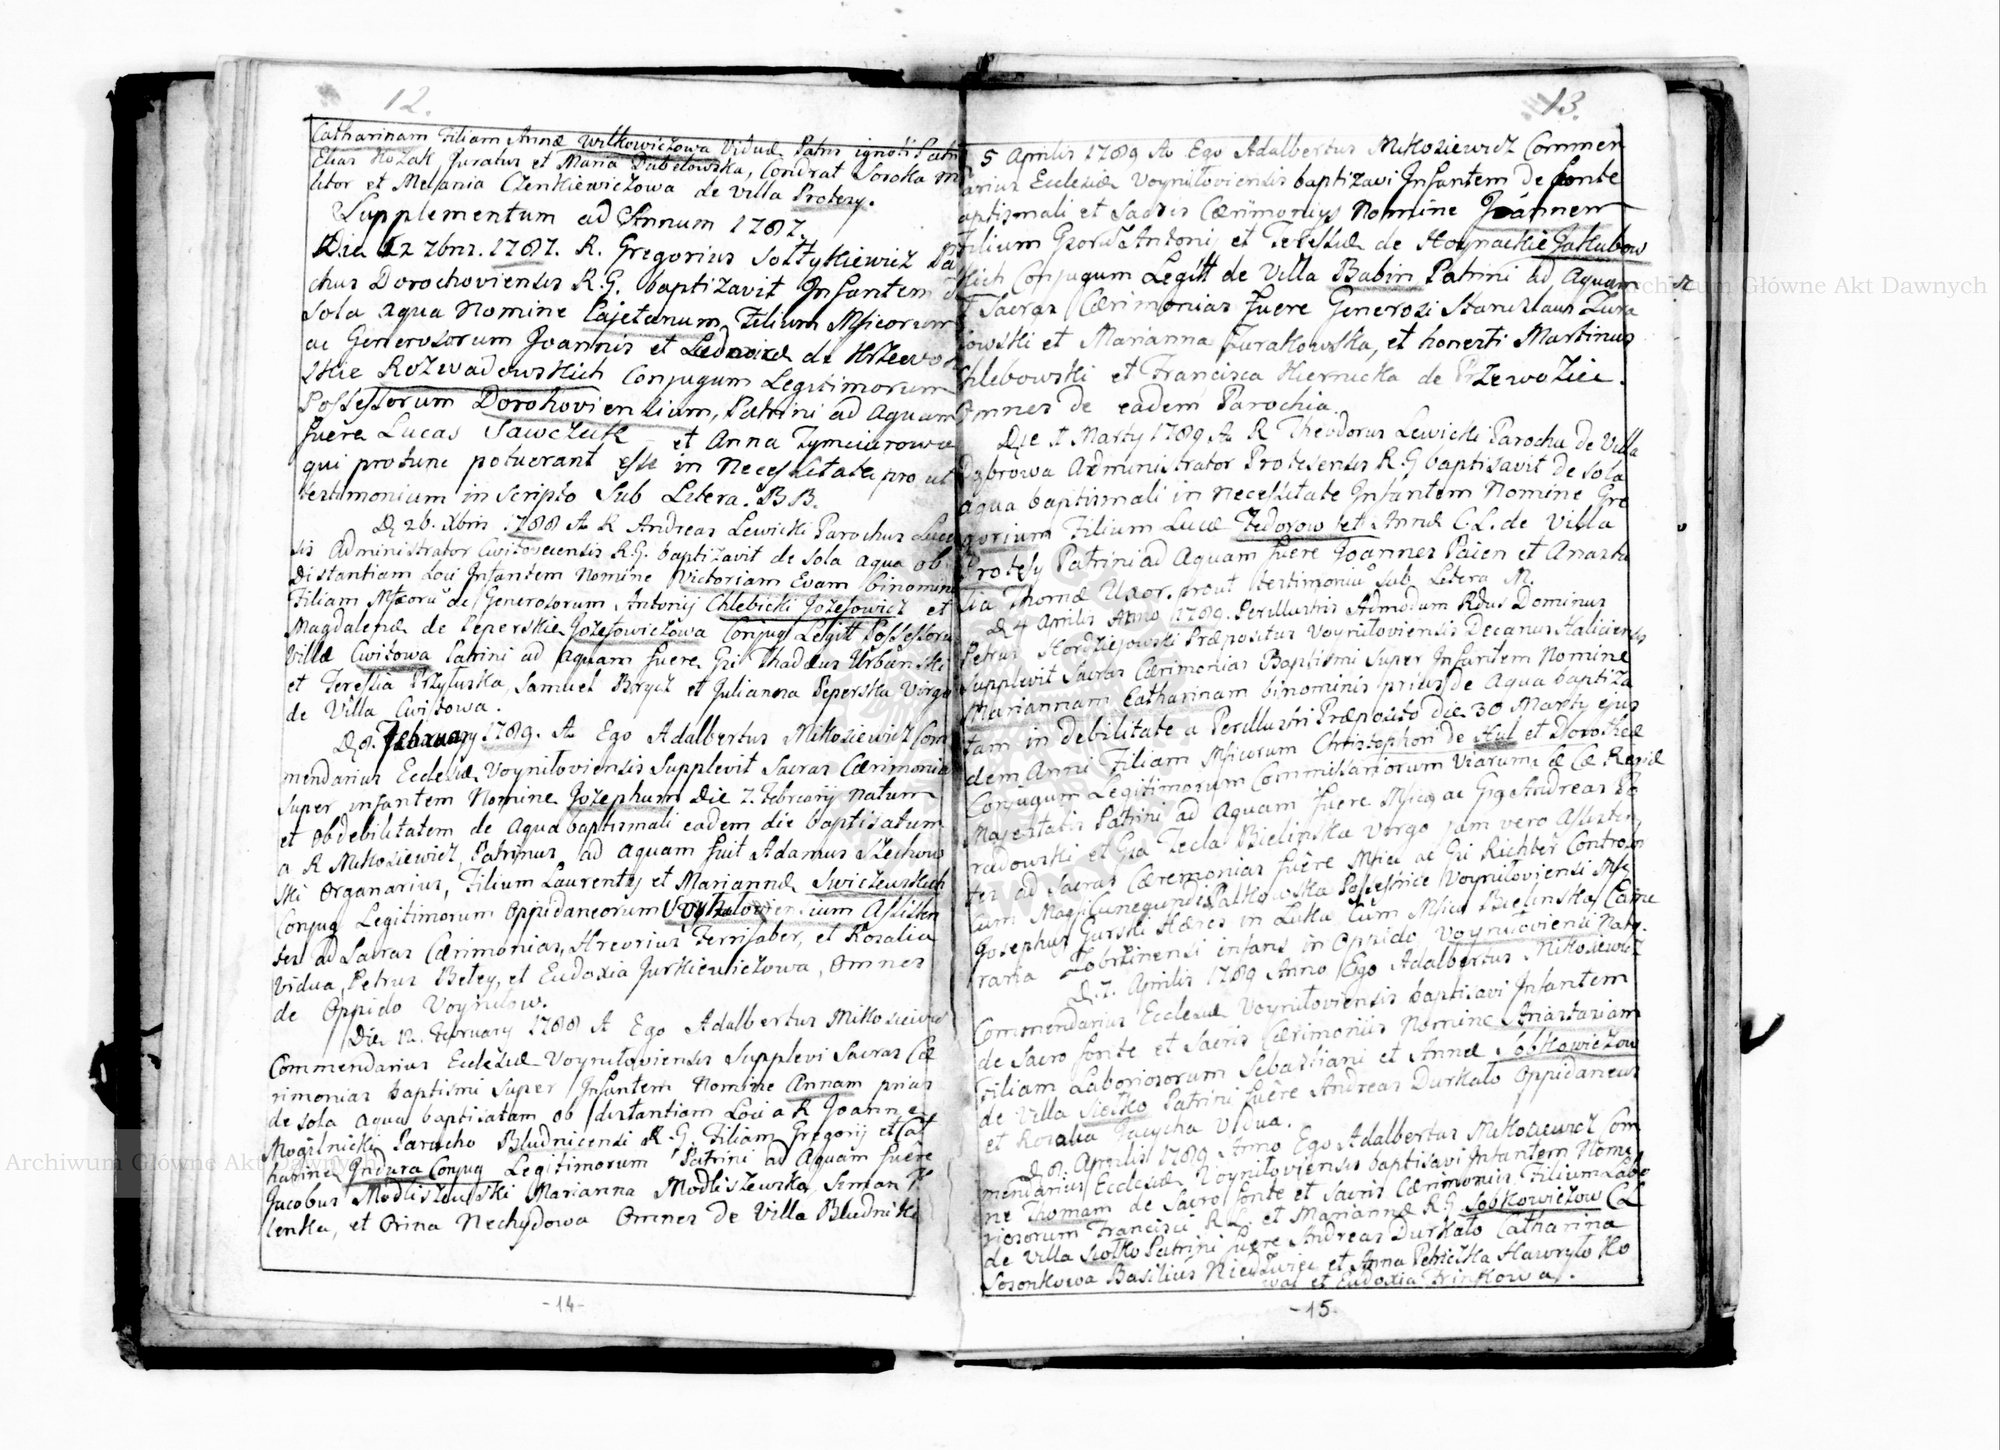 12.
Catharinam Filiam Annæ Wilkowiczowa Viduæ Patris ignoti Patri
Elias Kozak, Juratus et Maria Dubelowska, Condrat Soroka
litor et Melania Czenkiewiczowa de Villa Protesy.
Supplementum ad Annum 1787
Die 12 7bris. 1787. R. Gregorius Sołtykiewicz Pa
chus Dorochoviensis R.G. baptizavit Infantem
sola aqua Nomine Cajetanum Filium Mficorum
ac Generosorum Joannis et Ludovicæ de
skie Rozwadowskich Conjugum Legitimorum
Possessorum Dorohoviensium, Patrini ad Aquam
fuere Lucas Sawczuk et Anna Tymciurowa
qui protunc potuerant esse in Necessitate, pro ut
testimonium in Scripto Sub Litera. BB.
D. 26. Xbris 1788 A R Andreas Lewicki Parochus
sis Administrator Cwitoviensis R.G. baptizavit de sola aqua ob
Distantiam Loci Infantem Nomine Victoriam Evam binomine
Filiam Mficoru de Generosorum Antonij Chlebicki Jozefowicz et
Magdalenæ de Peperskie Jozefowiczowa Conjug Legitt Possessoru
Villæ Cwitowa Patrini ad Aquam fuere Gsi Thadæus Urbanski
et Teressia Przyłuska, Samuel Borycz et Julianna Peperska Virgo
de Villa Cwitowa.
D. 8. February 1789. A Ego Adalbertus Mikosiewicz Com
mendarius Ecclesiæ Voyniloviensis Supplevit Sacras Cærimonias
Super infantem Nomine Jozephum Die 7. February natum
et ob debilitatem de Aqua baptismali eadem die baptisatum
a R Mikosiewicz, Patrinus ad aquam fuit Adamus Szechow
ski Organarius, Filium Laurentij et Mariannæ Swiczewskich
Conjug Legitimorum Oppidaneorum Voyniloviensium Assisten
tes ad Sacras Cærimonias, Hrevorius Ferrifaber, et Rosalia
Vidua, Petrus Beley, et Eudoxia Jurkiewiczowa, Omnes
de Oppido Voynilow.
Die 12. February 1788 A Ego Adalbertus Mikosiewicz
Commendarius Ecclesiæ Voyniloviensis Supplevi Sacras Cæ
rimonias baptismi Super Infantem Nomine Annam prius
de sola aqua baptisatam ob distantiam Loci a R Joanne
Mogilnicki Parocho Bludnicensi R.G. Filiam Gregorij et Cat
harinæ Jndura Conjug Legitimorum Patrini ad Aquam fuere
Jacobus Modliszewski Marianna Modliszewska, Seman
lenka, et Orina Nechydowa Omnes de Villa Bludniki
-14-
13.
5 Aprilis 1789 A Ego Adalbertus Mikosiewicz Commen
darius Ecclesiæ Voyniloviensis baptizavi Infantem de fonte
baptismali et Sacris Cærimonijs Nomine Joannem
Filium Antonij et Teressiæ de Hoynackie Jakubow
skich Conjugum Legitt de Villa Babin Patrini ad Aquam
et Sacras Cærimonias fuere Generosi Stanislaus Zura
kowski et Marianna Zurakowska, et honesti Martinus
Chlebowski et Francisca Kiernicka de Przewoziec.
Omnes de eadem Parochia.
Die 1 Marty 1789 A R Theodorus Lewicki Parochu de Villa
Dąbrowa Administrator Protesensis R.G baptisavit de sola
aqua baptismali in necessitate Infantem Nomine Gre
gorium Filium Lucæ Fedorow et Annæ C.L. de Villa
Protesy Patrini ad Aquam fuere Joannes Paien et Anasta
sia Thomæ Uxor. prout testimoniu Sub Letera M.
D. 4 Aprilis Anno 1789. Perillustris Admodum Rdus Dominus
Petrus Kordziejowski Præpositus Voyniloviensis Decanus Haliciensis
Supplevit Sacras Cærimonias Baptismi Super Infantem Nomine
Mariannam Catharinam binominis prius de Aqua baptiza
tam in debilitate a Perillustri Præposito die 30 Marty ejus
dem Anni Filiam Mficorum Christophori de Hul et Dorotheæ
Conjugum Legitimorum Commissariorum Viarum Cæ Cæ Regiæ
Majestatis Patrini ad Aquam fuere Mficq ac Gsq Andreas Po
radowski et Gsa Tecla Bielinska Virgo jam vero Assisten
tes ad Sacras Cæremonias fuere Mfici ac Gsi Richter Controm
cum Magfi Cunegundi Palkowska Possestrice Voyniloviensi
Josephus Gurski Hæres in Luka Cum Mfica Bielinska Came
raria Dobrzinensi infans in Oppido Voyniloviensi Nata.
D. 7. Aprilis 1789 Anno Ego Adalbertus Mikosiewicz
Commendarius Ecclesiæ Voyniloviensis baptisavi Infantem
de Sacro fonte et Sacris Cærimoniis Nomine Anastasiam
Filiam Laboriosorum Sebastiani et Annæ Sobkowiczow
de Villa Siołko Patrini fuere Andreas Durkało Oppidaneus
et Rosalia Jacycha Vidua.
D. 8. Aprilis 1789 Anno Ego Adalbertus Mikosiewicz Com
mendarius Ecclesiæ Voyniloviensis baptisavi Infantem Nomi
ne Thomam de Sacro fonte et Sacris Cærimoniis, Filium Labo
riosorum Francisci R L. et Mariannæ R G Sobkowiczow CL
de Villa Siołko Patrini fuere Andreas Durkało Catharina
Sosonkowa Basilius Niedzwiec et Anna Petriczka Hawryło Ko
wal et Eudoxia Drinkowa.
-15-
Archiwum Główne Akt Dawnych
Archiwum Główne Akt Dawnych